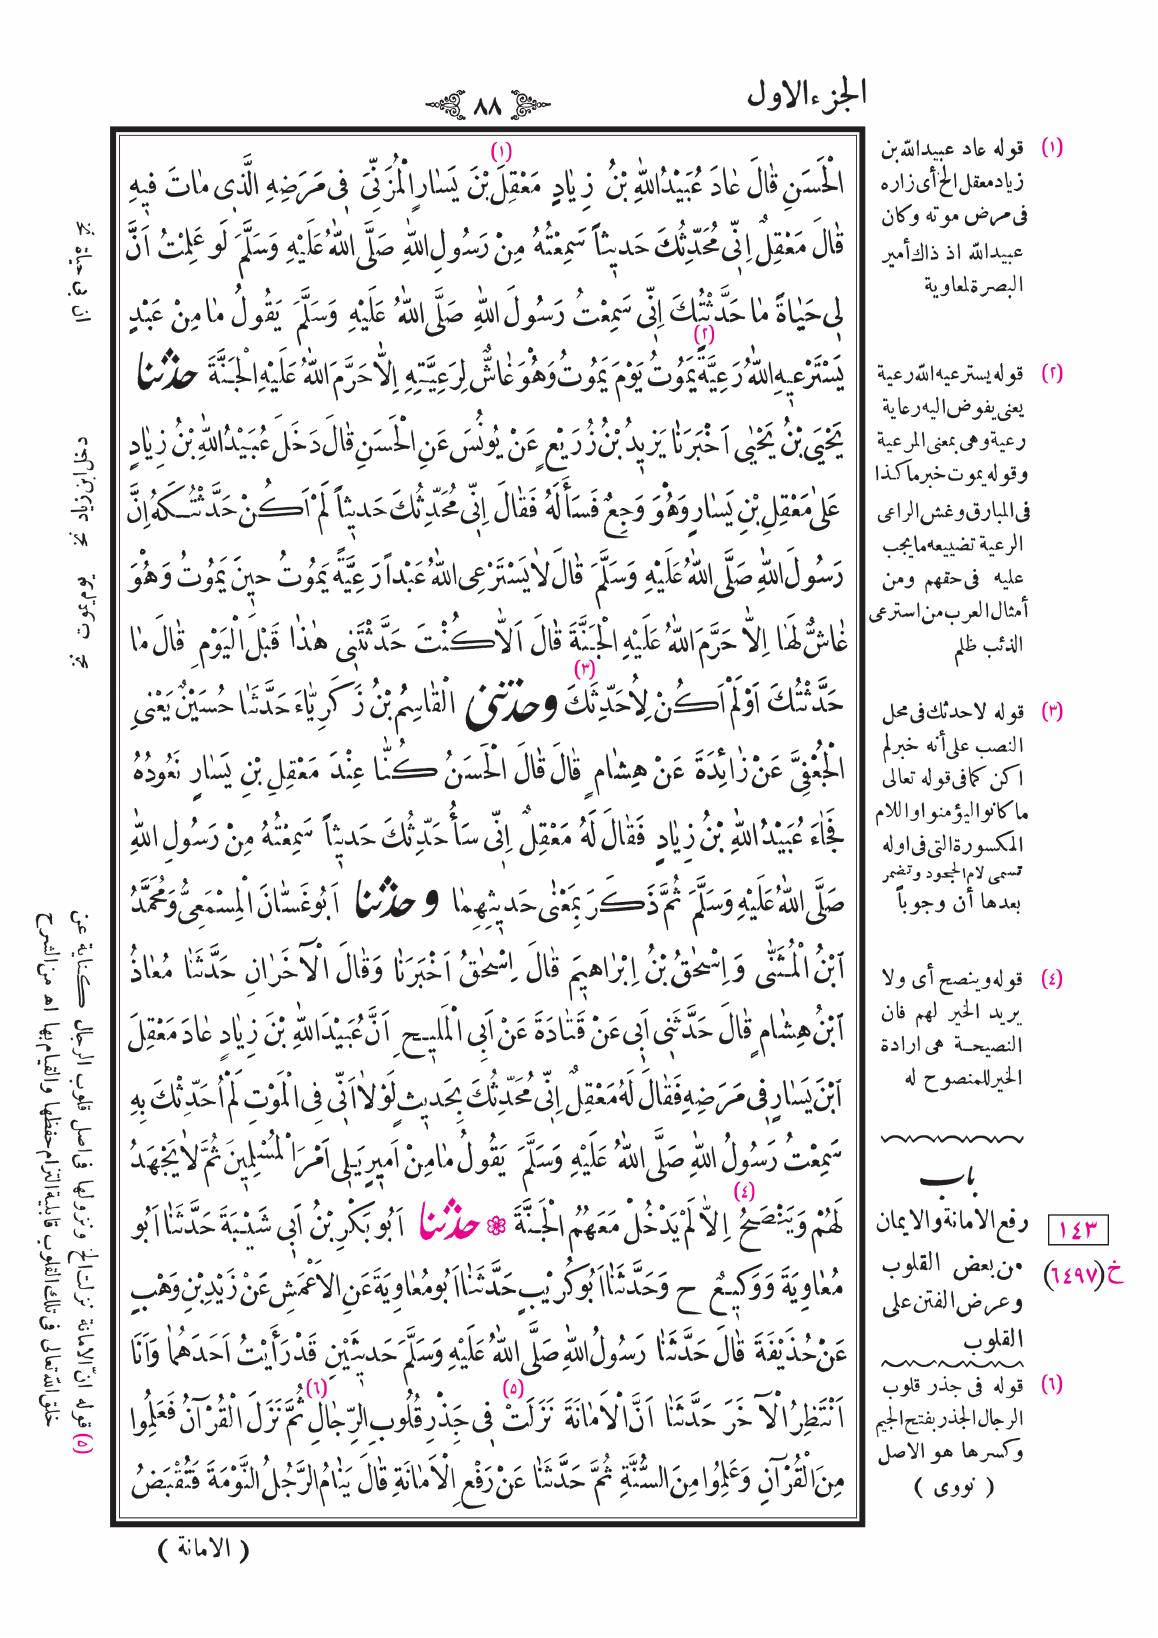 الجزء الاول
٨٨
(١)
الْحَسَنِ قَالَ عَادَ عُبَيْدُاللهِ بْنُ زِيَادٍ مَعْقِلَ بْنَ يَسَارٍ الْمُزَنِيَّ فِي مَرَضِهِ الَّذِي مَاتَ فِيهِ
قَالَ مَعْقِلٌ اِنِّي مُحَدِّثُكَ حَدِيثاً سَمِعْتُهُ مِنْ رَسُولِ اللهِ صَلَّى اللهُ عَلَيْهِ وَسَلَّمَ لَوْ عَلِمْتُ اَنَّ
لِي حَيَاةً مَا حَدَّثْتُكَ اِنِّي سَمِعْتُ رَسُولَ اللهِ صَلَّى اللهُ عَلَيْهِ وَسَلَّمَ يَقُولُ مَا مِنْ عَبْدٍ
(٢)
يَسْتَرْعِيهِ اللهُ رَعِيَّةً يَمُوتُ يَوْمَ يَمُوتُ وَهُوَ غَاشٌّ لِرَعِيَّتِهِ اِلاَّ حَرَّمَ اللهُ عَلَيْهِ الْجَنَّةَ حدثنا
يَحْيَى بْنُ يَحْيٰى اَخْبَرَنَا يَزِيدُ بْنُ زُرَيْعٍ عَنْ يُونُسَ عَنِ الْحَسَنِ قَالَ دَخَلَ عُبَيْدُاللهِ بْنُ زِيَادٍ
عَلَى مَعْقِلِ بْنِ يَسَارٍ وَهُوَ وَجِعٌ فَسَأَلَهُ فَقَالَ اِنِّي مُحَدِّثُكَ حَدِيثاً لَمْ اَكُنْ حَدَّثْتُكَهُ اِنَّ
رَسُولَ اللهِ صَلَّى اللهُ عَلَيْهِ وَسَلَّمَ قَالَ لاَ يَسْتَرْعِي اللهُ عَبْداً رَعِيَّةً يَمُوتُ حِينَ يَمُوتُ وَهُوَ
غَاشٌّ لَهَا اِلاَّ حَرَّمَ اللهُ عَلَيْهِ الْجَنَّةَ قَالَ اَلاَّ كُنْتَ حَدَّثْتَنِي هٰذَا قَبْلَ الْيَوْمِ قَالَ مَا
(٣)
حَدَّثْتُكَ اَوْ لَمْ اَكُنْ لِأُحَدِّثَكَ وحدثني الْقَاسِمُ بْنُ زَكَرِيَّاءَ حَدَّثَنَا حُسَيْنٌ يَعْنِي
الْجُعْفِيَّ عَنْ زَائِدَةَ عَنْ هِشَامٍ قَالَ قَالَ الْحَسَنُ كُنَّا عِنْدَ مَعْقِلِ بْنِ يَسَارٍ نَعُودُهُ
فَجَاءَ عُبَيْدُ اللهِ بْنُ زِيَادٍ فَقَالَ لَهُ مَعْقِلٌ اِنِّي سَأُحَدِّثُكَ حَدِيثاً سَمِعْتُهُ مِنْ رَسُولِ اللهِ
صَلَّى اللهُ عَلَيْهِ وَسَلَّمَ ثُمَّ ذَكَرَ بِمَعْنٰى حَدِيثِهِمَا وحدثنا اَبُو غَسَّانَ الْمِسْمَعِيُّ وَمُحَمَّدُ
ابْنُ الْمُثَنّٰى وَاِسْحٰقُ بْنُ اِبْرَاهِيمَ قَالَ اِسْحٰقُ اَخْبَرَنَا وَقَالَ الْآخَرَانِ حَدَّثَنَا مُعَاذُ
ابْنُ هِشَامٍ قَالَ حَدَّثَنِي اَبِي عَنْ قَتَادَةَ عَنْ اَبِي الْمَلِيحِ اَنَّ عُبَيْدَاللهِ بْنَ زِيَادٍ عَادَ مَعْقِلَ
ابْنَ يَسَارٍ فِي مَرَضِهِ فَقَالَ لَهُ مَعْقِلٌ اِنِّي مُحَدِّثُكَ بِحَدِيثٍ لَوْلاَ اَنِّي فِي الْمَوْتِ لَمْ اُحَدِّثْكَ بِهِ
سَمِعْتُ رَسُولَ اللهِ صَلَّى اللهُ عَلَيْهِ وَسَلَّمَ يَقُولُ مَا مِنْ اَمِيرٍ يَلِي اَمْرَ الْمُسْلِمِينَ ثُمَّ لاَ يَجْهَدُ
(٤)
لَهُمْ وَيَنْصَحُ اِلاَّ لَمْ يَدْخُلْ مَعَهُمُ الْجَنَّةَ ❁ حدثنا اَبُو بَكْرِ بْنُ اَبِي شَيْبَةَ حَدَّثَنَا اَبُو
مُعَاوِيَةَ وَوَكِيعٌ ح وَحَدَّثَنَا اَبُو كُرَيْبٍ حَدَّثَنَا اَبُو مُعَاوِيَةَ عَنِ الْاَعْمَشِ عَنْ زَيْدِ بْنِ وَهْبٍ
عَنْ حُذَيْفَةَ قَالَ حَدَّثَنَا رَسُولُ اللهِ صَلَّى اللهُ عَلَيْهِ وَسَلَّمَ حَدِيثَيْنِ قَدْ رَأَيْتُ اَحَدَهُمَا وَاَنَا
(٥) (٦)
اَنْتَظِرُ الْآخَرَ حَدَّثَنَا اَنَّ الْاَمَانَةَ نَزَلَتْ فِي جَذْرِ قُلُوبِ الرِّجَالِ ثُمَّ نَزَلَ الْقُرْآنُ فَعَلِمُوا
مِنَ الْقُرْآنِ وَعَلِمُوا مِنَ السُّنَّةِ ثُمَّ حَدَّثَنَا عَنْ رَفْعِ الْاَمَانَةِ قَالَ يَنَامُ الرَّجُلُ النَّوْمَةَ فَتُقْبَضُ
( الامانة )
(١) قوله عاد عبيدالله بن
زياد معقل الخ أى زاره
فى مرض موته وكان
عبيدالله اذ ذاك أمير
البصرة لمعاوية
(٢) قوله يسترعيه الله رعية
يعنى يفوض اليه رعاية
رعية وهى بمعنى المرعية
وقوله يموت خبر ما كذا
فى المبارق وغش الراعى
الرعية تضييعه ما يجب
عليه فى حقهم ومن
أمثال العرب من استرعى
الذئب ظلم
(٣) قوله لاحدثك فى محل
النصب على أنه خبر لم
اكن كما فى قوله تعالى
ما كانوا ليؤمنوا واللام
المكسورة التى فى اوله
تسمى لام الجحود وتضمر
بعدها أن وجوباً
(٤) قوله وينصح أى ولا
يريد الخير لهم فان
النصيحة هى ارادة
الخير للمنصوح له
باب
رفع الامانة والايمان
من بعض القلوب
وعرض الفتن على
القلوب
١٤٣
خ(٦٤٩٧)
(٦) قوله فى جذر قلوب
الرجال الجذر بفتح الجيم
وكسرها هو الاصل
( نووى )
ان بى حياة نخ
دخل ابن زياد نخ
يوم يموت نخ
(٥) قوله انّ الامانة نزلت الخ ونزولها فى اصل قلوب الرجال كناية عن
خلق الله تعالى فى تلك القلوب قابلية التزام حفظها والقيام بها اه من الشرح